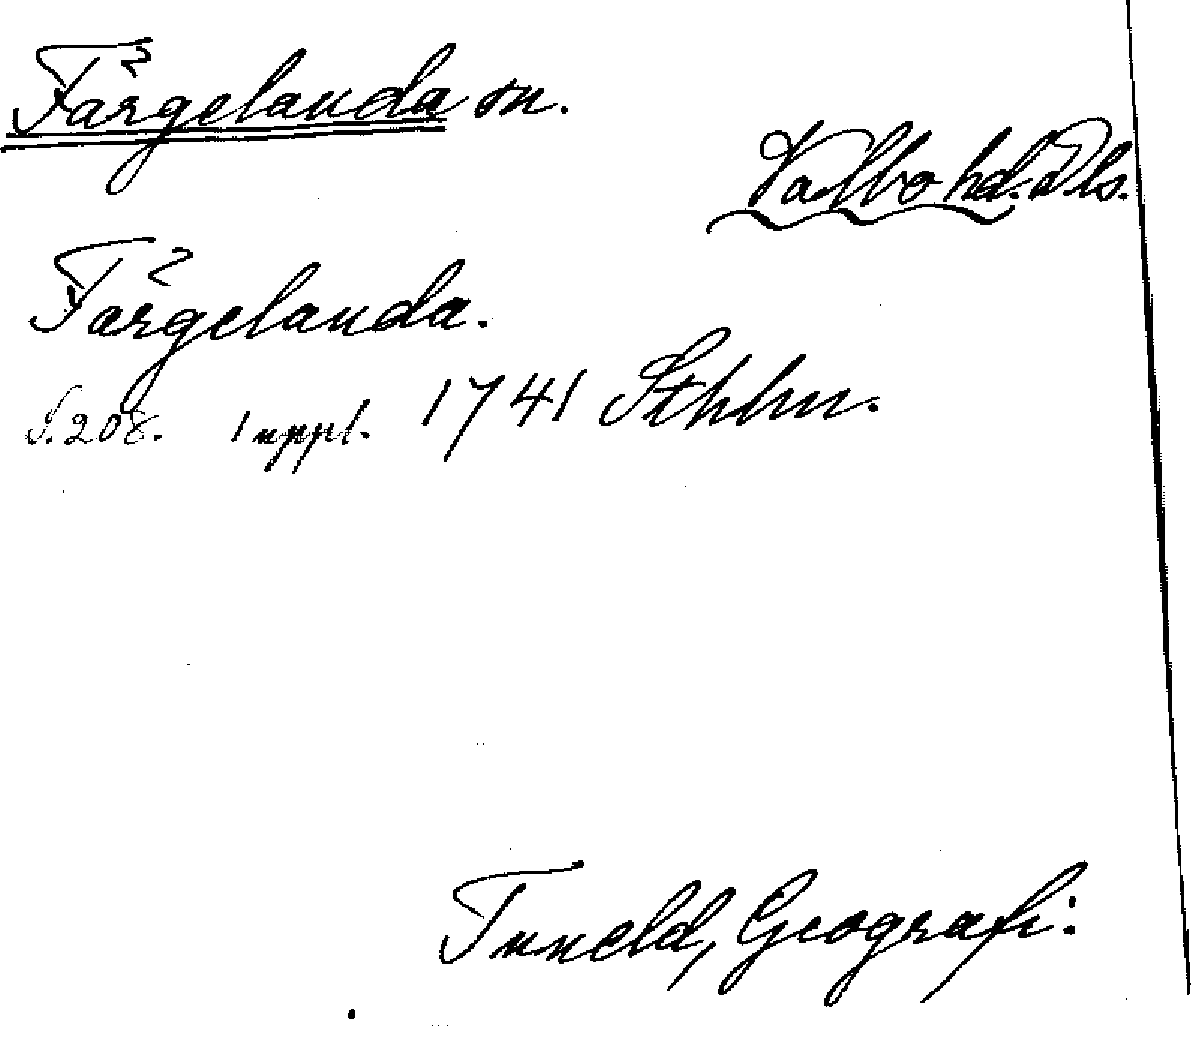 Färgelanda sn.
Valbo hd. Dls.
Färgelanda.
S. 208. 1 uppl. 1741 Sthlm.
Tuneld, Geografi.